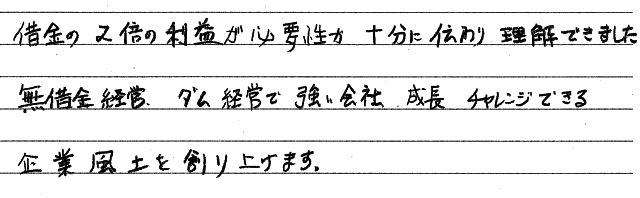 借金の2倍の利益が必要性が十分に伝わり理解できました
無借金経営、ダム経営で強い会社 成長 チャレンジできる
企業風土を創り上げます。